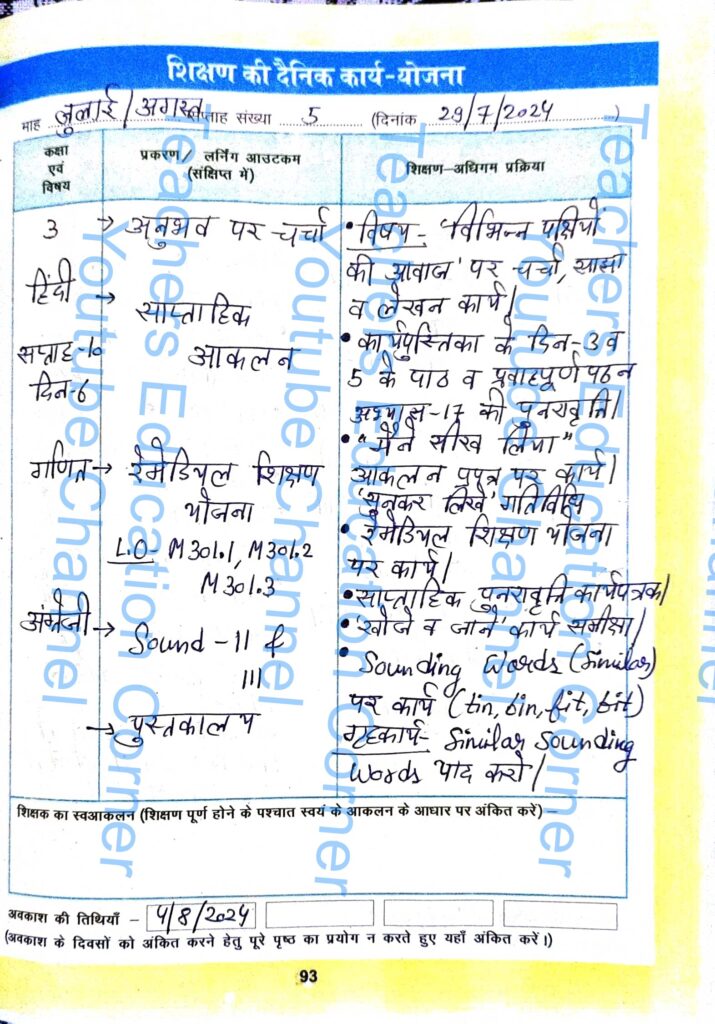 शिक्षण की दैनिक कार्य-योजना
माह जुलाई/अगस्त सप्ताह संख्या 5 (दिनांक 29/7/2024)
कक्षा एवं विषय
प्रकरण/ लर्निंग आउटकम (संक्षिप्त में)
शिक्षण-अधिगम प्रक्रिया
3
हिंदी
सप्ताह-10
दिन-6
→ अनुभव पर चर्चा
→ साप्ताहिक
आकलन
• विषय- 'विभिन्न पक्षियों
की आवाज' पर चर्चा, साझा
व लेखन कार्य।
• कार्यपुस्तिका के दिन-3 व
5 के पाठ व प्रवाहपूर्ण पठन
अभ्यास-17 की पुनरावृत्ति।
• "मैंने सीख लिया"
आकलन प्रपत्र पर कार्य।
'सुनकर लिखें' गतिविधि
गणित → रेमेडियल शिक्षण
योजना
L.O- M301.1, M301.2
M301.3
• रेमेडियल शिक्षण योजना
पर कार्य।
• साप्ताहिक पुनरावृत्ति कार्यपत्रक।
• 'खोजें व जानें' कार्य समीक्षा।
अंग्रेजी → Sound-11 &
111
• Sounding Words (Similar)
पर कार्य (tin, bin, fit, bit)
गृहकार्य- Similar Sounding
Words याद करो।
→ पुस्तकालय
शिक्षक का स्वआकलन (शिक्षण पूर्ण होने के पश्चात स्वयं के आकलन के आधार पर अंकित करें) –
अवकाश की तिथियाँ – 4/8/2024
(अवकाश के दिवसों को अंकित करने हेतु पूरे पृष्ठ का प्रयोग न करते हुए यहाँ अंकित करें।)
93
Teachers Education Corner
Youtube Channel
Teachers Education Corner
Youtube Channel
Teachers Education Corner
Youtube Channel